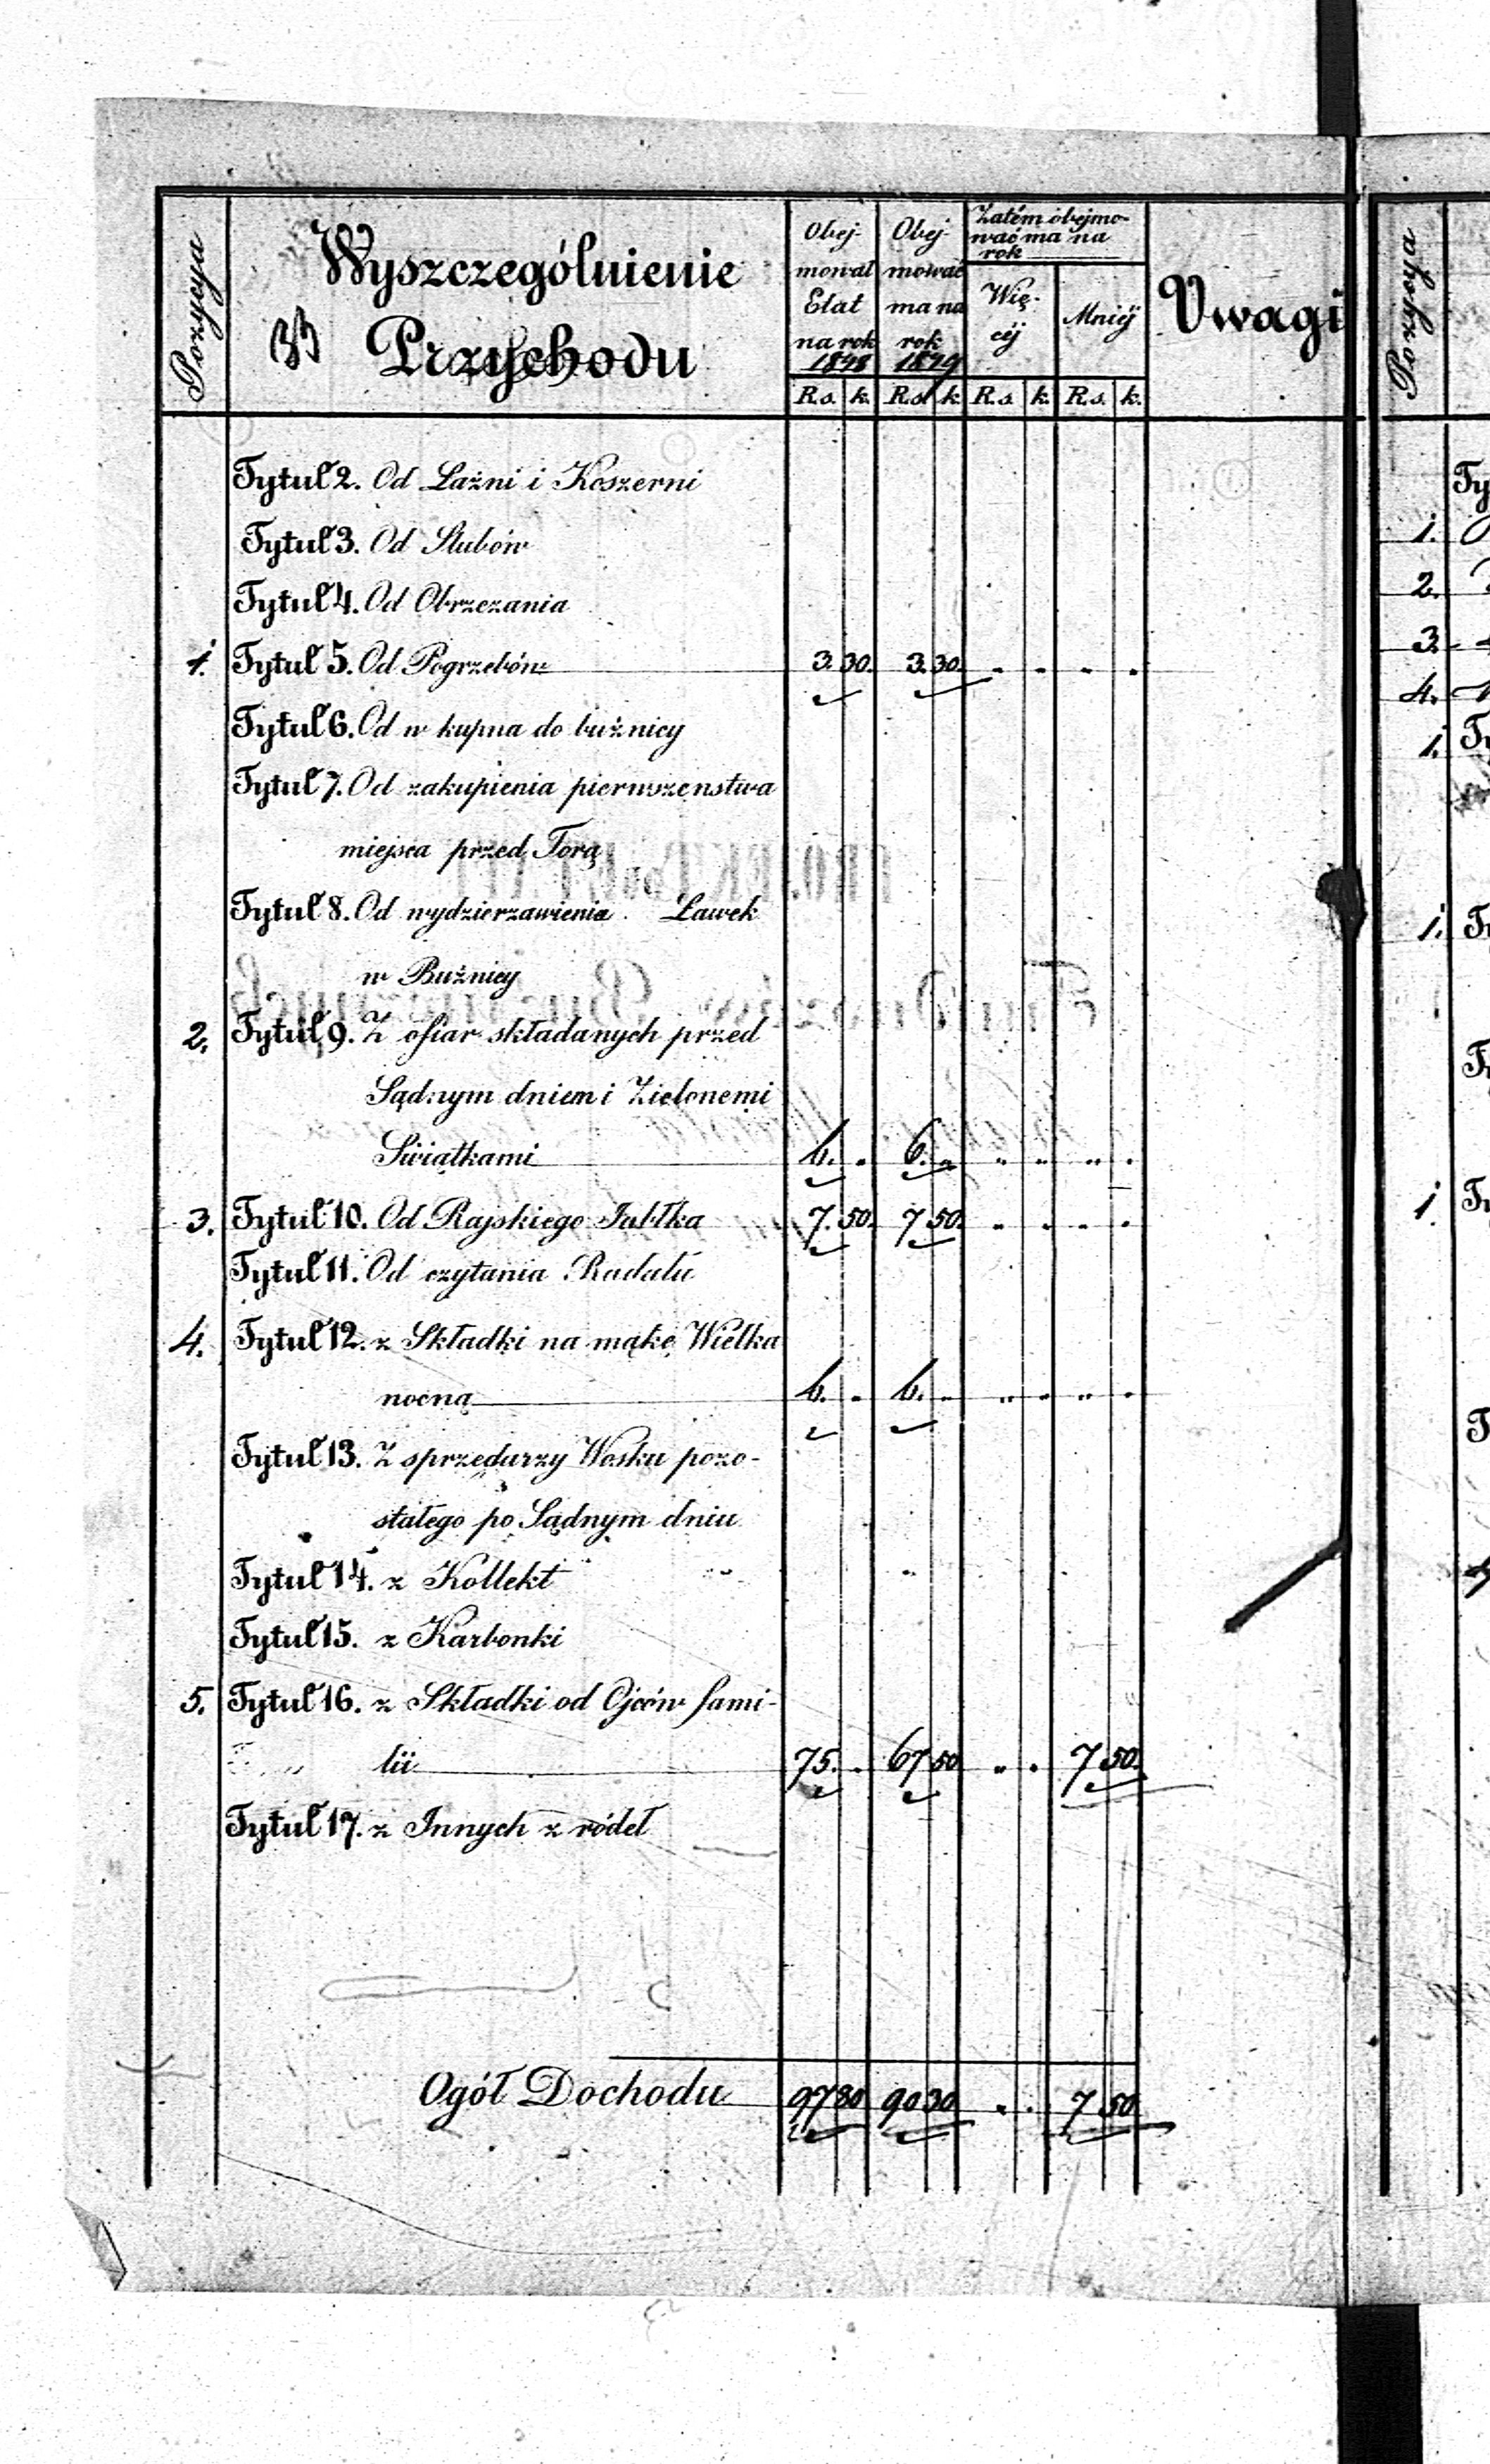 Pozycya
Wyszczególnienie
Przychodu
33
Obej-
mował
Etat
na rok
1848
Obej-
mować
ma na
rok
1849
Zatém obejmo-
wać ma na
rok
Wię-
céj
Mniéj
Uwagi
R.s. k. R.s. k. R.s. k. R.s. k.
Tytuł 2. Od Łaźni i Koszerni
Tytuł 3. Od Slubów
Tytuł 4. Od Obrzezania
1. Tytuł 5. Od Pogrzebów 3. 30. 3. 30. " " " "
Tytuł 6. Od w kupna do bużnicy
Tytuł 7. Od zakupienia pierwszenstwa
miejsca przed Torą
Tytuł 8. Od wydzierzawienia Ławek
w Bużnicy
2. Tytuł 9. Z ofiar składanych przed
Sądnym dniem i Zielonemi
Swiątkami 6. " 6. " " " " "
3. Tytuł 10. Od Rajskiego Jabłka 7. 50. 7 50. " " " "
Tytuł 11. Od czytania Rodału
4. Tytuł 12. z Składki na mąkę Wielka
nocną 6. " 6. " " " " "
Tytuł 13. Z sprzedarzy Wosku pozo-
stałego po Sądnym dniu
Tytuł 14. z Kollekt
Tytuł 15. z Karbonki
5. Tytuł 16. z Składki od Ojców fami-
lii 75. " 67 50 " " 7 50.
Tytuł 17. z Innych z ródeł
Ogół Dochodu 97 80 90 30 " " 7 50
Pozycya
1.
2.
3.
4.
1.
1.
1.